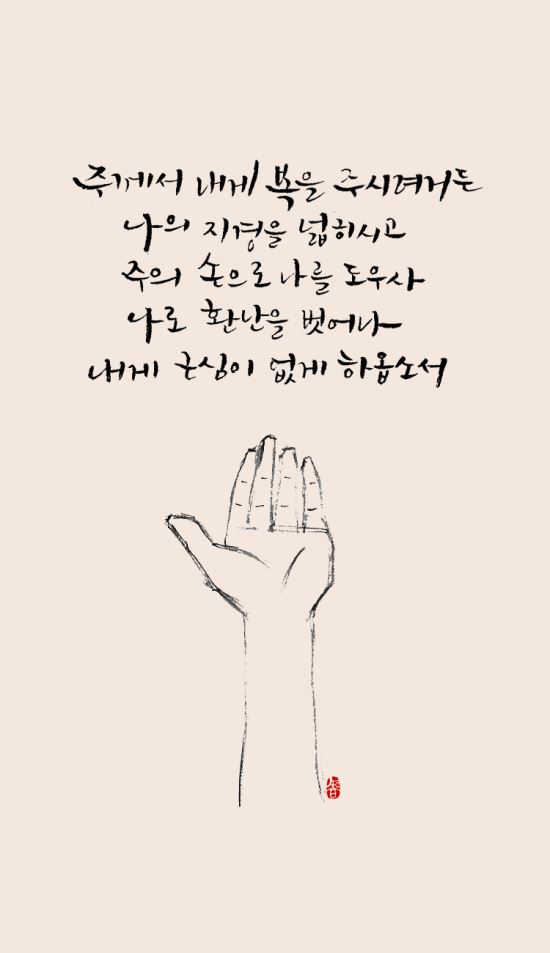 주께서 내게 복을 주시려거든
나의 지경을 넓히시고
주의 손으로 나를 도우사
나로 환난을 벗어나
내게 근심이 없게 하옵소서